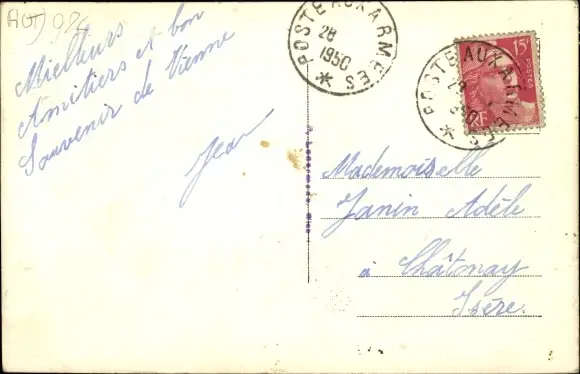 AUT 984
Meilleurs
Amitiers et bon
Souvenir de Vienne
Jean
POSTE AUX ARMEES
28
1950
15F
RF
POSTE AUX ARMEES
Mademoiselle
Janin Adèle
à Châtonay
Isère.